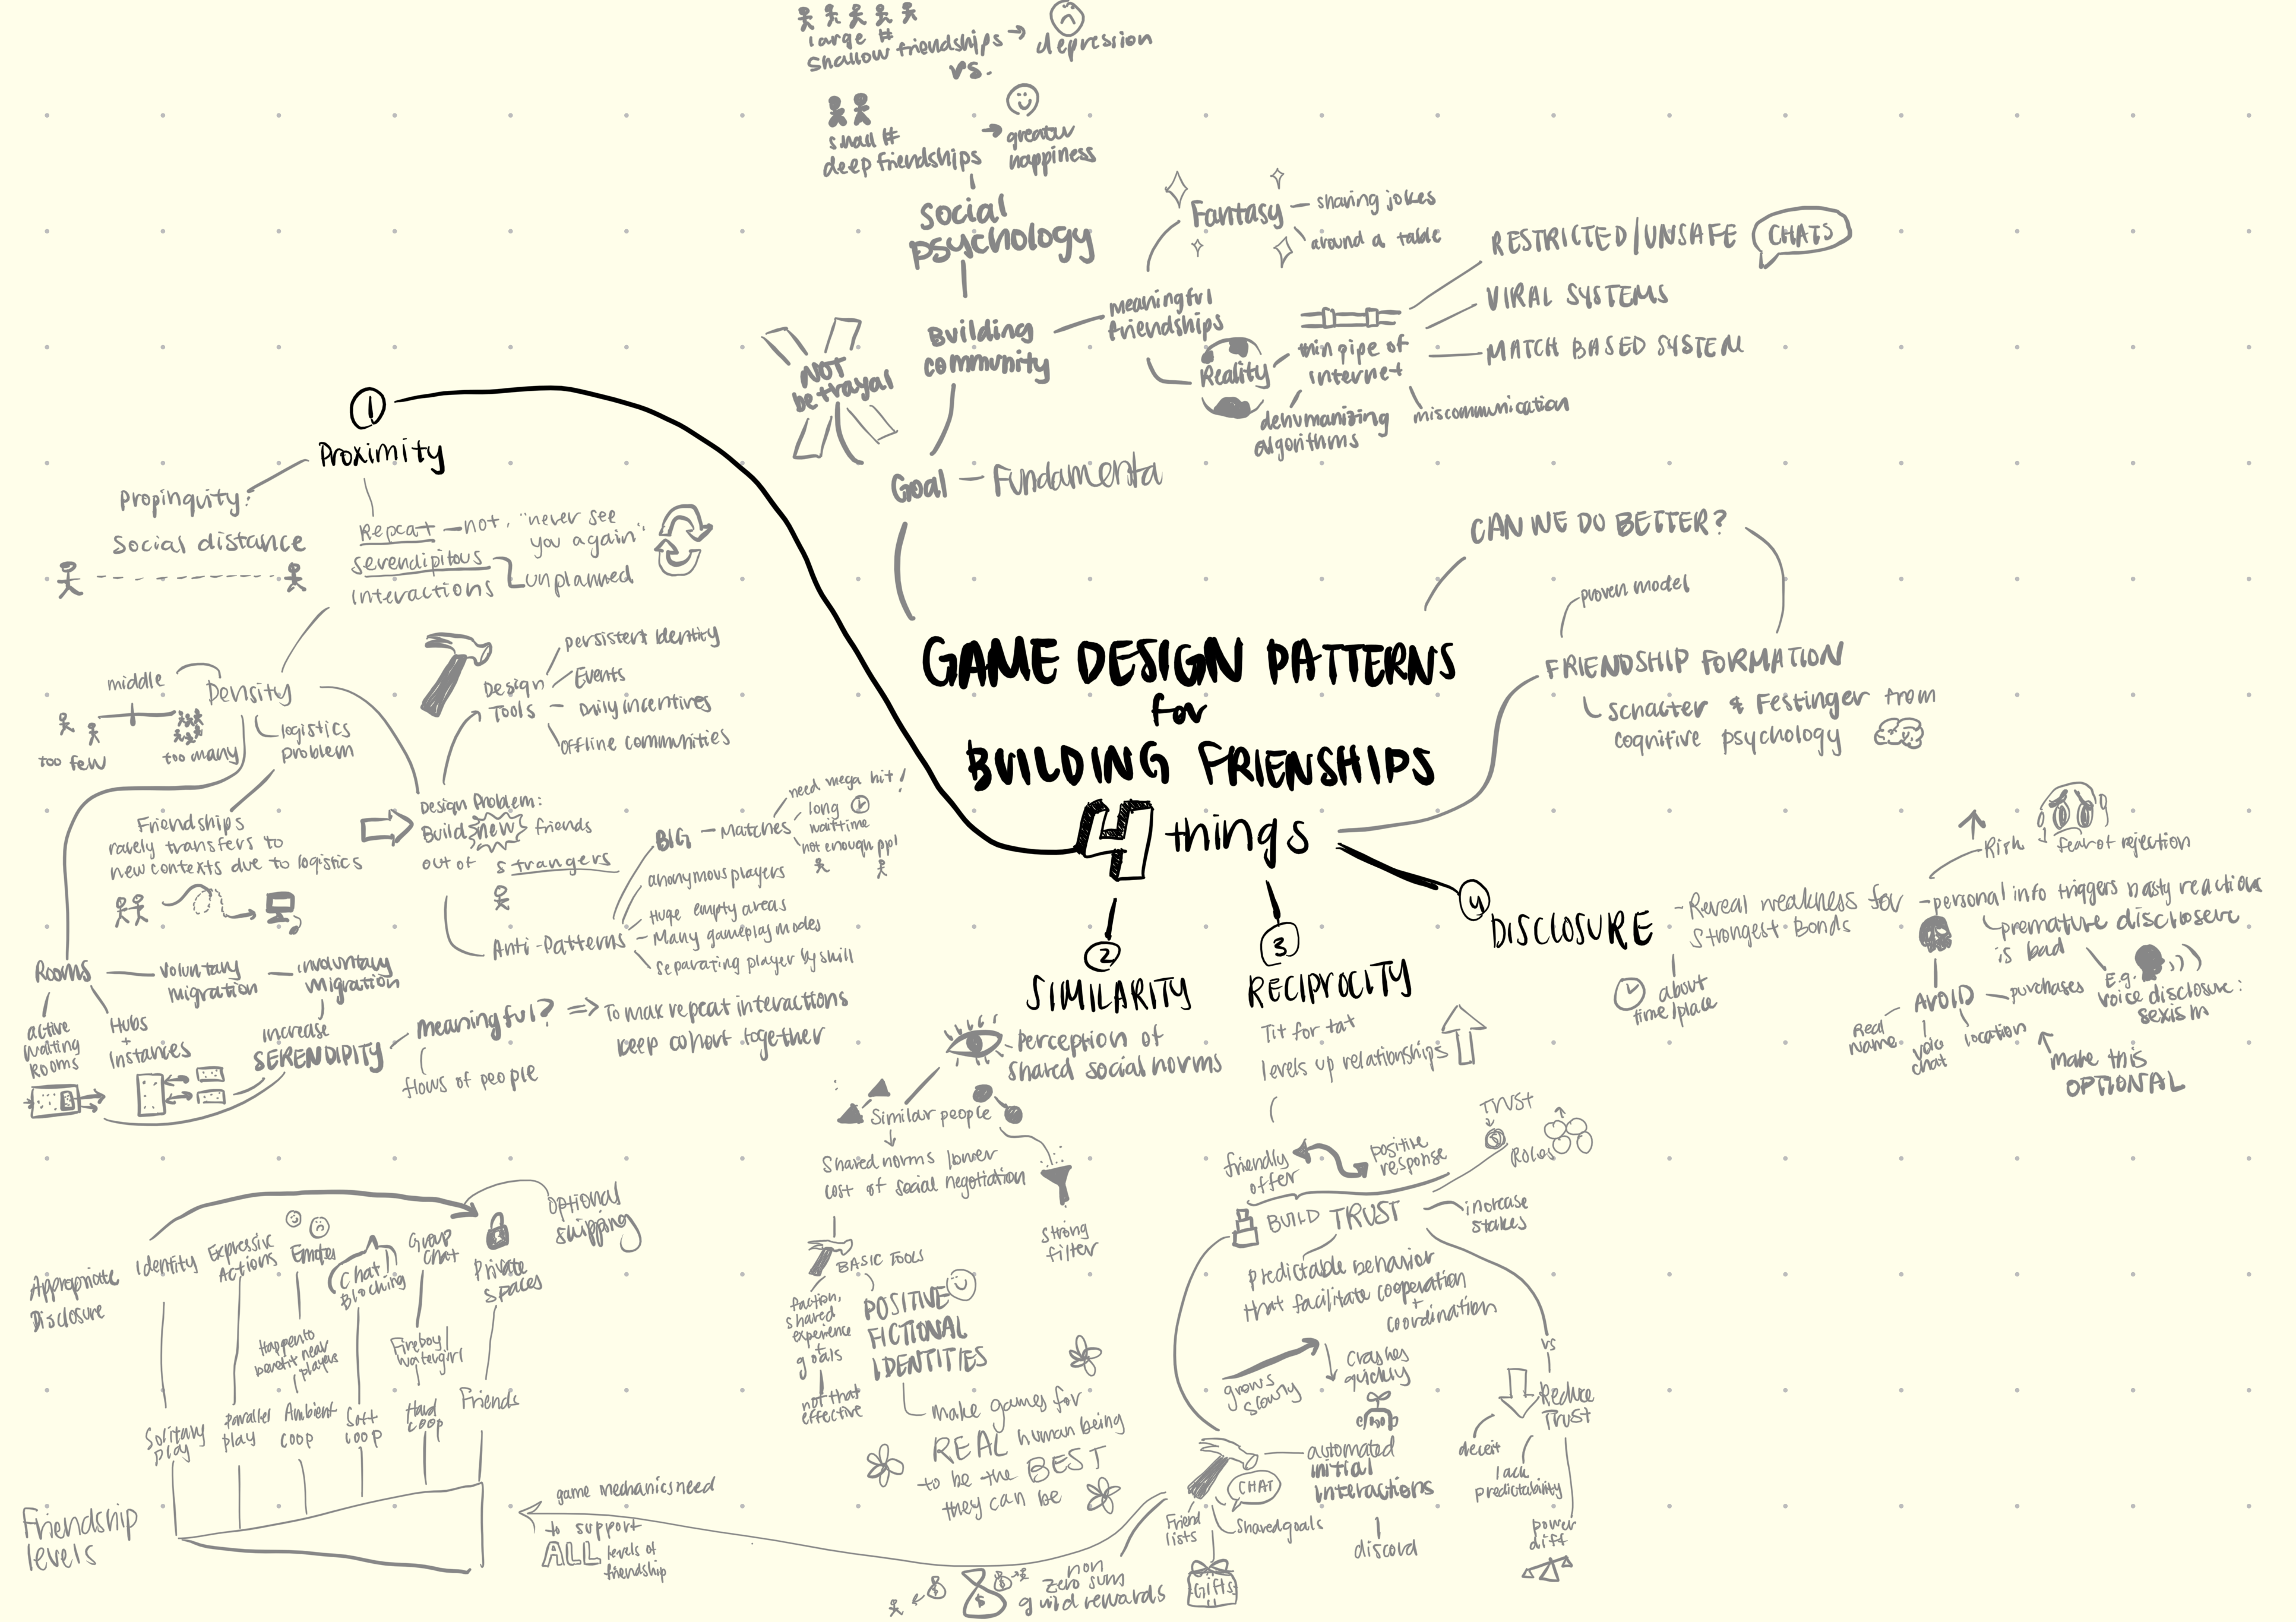 large #
shallow friendships → depression
vs.
small #
deep friendships
→ greater
happiness
social
psychology
Building
community
meaningful
friendships
Fantasy
sharing jokes
around a table
Reality
thin pipe of
internet
RESTRICTED/UNSAFE CHATS
VIRAL SYSTEMS
MATCH BASED SYSTEM
miscommunication
dehumanizing
algorithms
NOT
betrayal
Goal — Fundamenta
CAN WE DO BETTER?
proven model
FRIENDSHIP FORMATION
Schacter & Festinger from
cognitive psychology
GAME DESIGN PATTERNS
for
BUILDING FRIENSHIPS
4 things
1
Proximity
Propinquity:
Social distance
Repeat — not, "never see
you again"
serendipitous
unplanned
interactions
Density
middle
too few
too many
logistics
problem
Friendships
rarely transfers to
new contexts due to logistics
Design
Tools
persistent identity
Events
Daily incentives
offline communities
Design Problem:
Build new friends
out of strangers
Anti-Patterns
BIG — Matches
need mega hit!
long
wait time
not enough ppl
anonymous players
Huge empty areas
Many gameplay modes
separating player by skill
Rooms
voluntary
migration
involuntary
migration
active
waiting
rooms
Hubs
+
Instances
increase
SERENDIPITY
meaningful? ⇒ To max repeat interactions
keep cohort together
flows of people
2
SIMILARITY
Perception of
shared social norms
Similar people
Shared norms lower
cost of social negotiation
strong
filter
BASIC TOOLS
faction,
shared
experience
+
goals
not that
effective
POSITIVE
FICTIONAL
IDENTITIES
make games for
REAL human being
to be the BEST
they can be
3
RECIPROCITY
Tit for tat
levels up relationships
friendly
offer
positive
response
TRUST
Roles
BUILD TRUST
increase
stakes
predictable behavior
that facilitate cooperation
+
coordination
grows
slowly
crashes
quickly
vs
Reduce
Trust
deceit
lack
predictability
power
diff
automated
initial
interactions
discord
CHAT
Shared goals
Friend
lists
Gifts
non
zero sum
guild rewards
4
DISCLOSURE
- Reveal weakness for
strongest Bonds
about
time/place
Risk
fear of rejection
- personal info triggers nasty reactions
premature disclosere
is bad
E.g.
voice disclosure:
sexism
AVOID
purchases
Real
name
voice
chat
location
make this
OPTIONAL
Appropriate
Disclosure
Identity
Expressive
Actions
Emotes
Chat!
Blocking
Group
chat
Private
spaces
optional
skipping
Happen to
benefit near
players
Fireboy/
watergirl
Solitary
play
parallel
play
Ambient
coop
Soft
coop
Hard
coop
Friends
Friendship
levels
game mechanics need
to support
ALL levels of
friendship